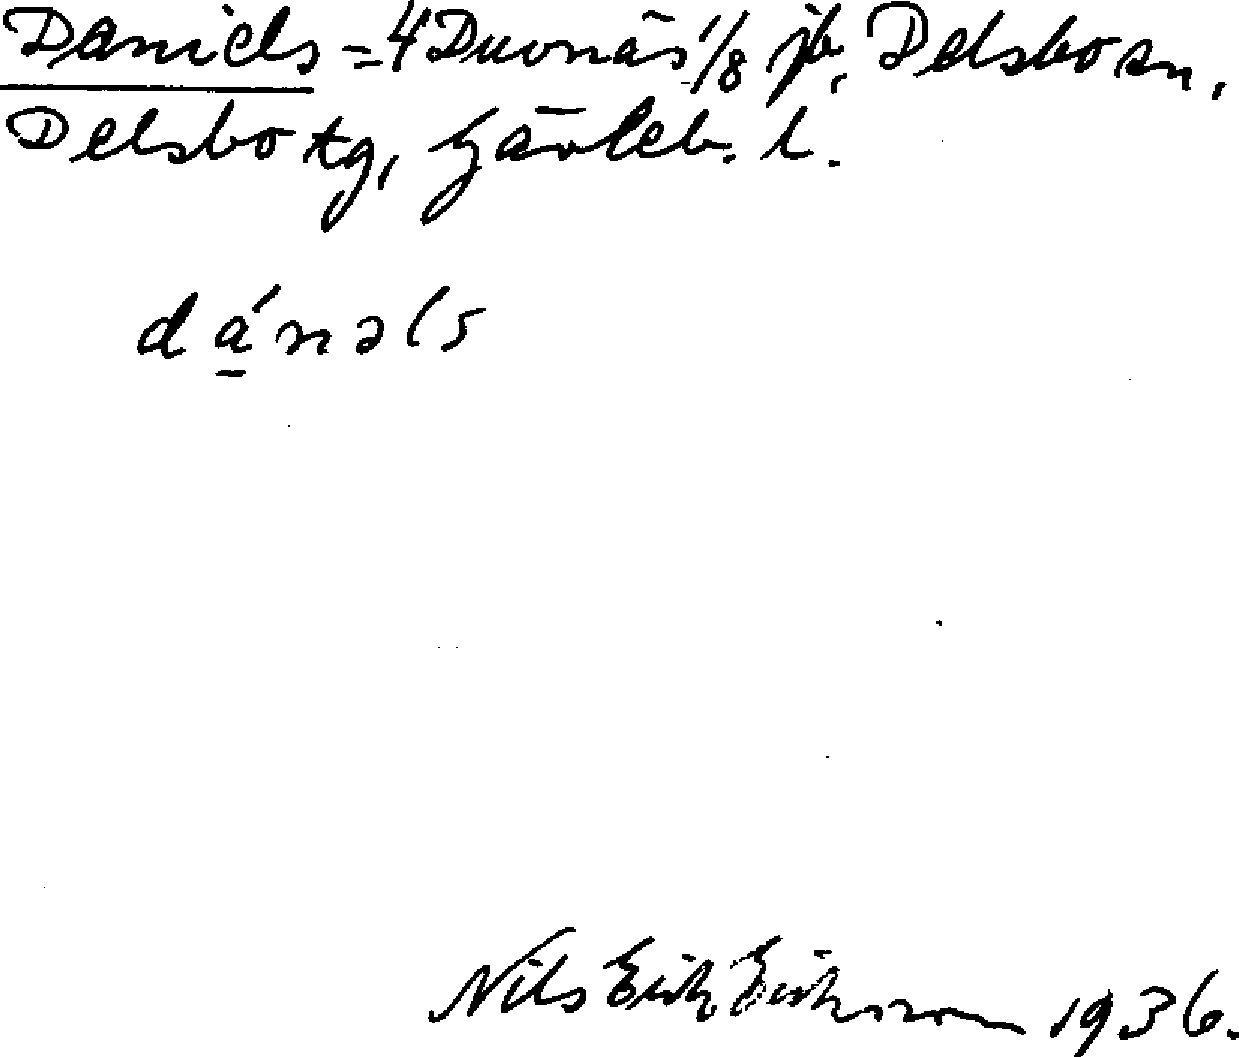 Daniels = 4 Duvnäs 1/8 jb, Delsbo sn,
Delsbo tg, Gävleb. l.
dá̱nəls
Nils Erik Eriksson 1936.